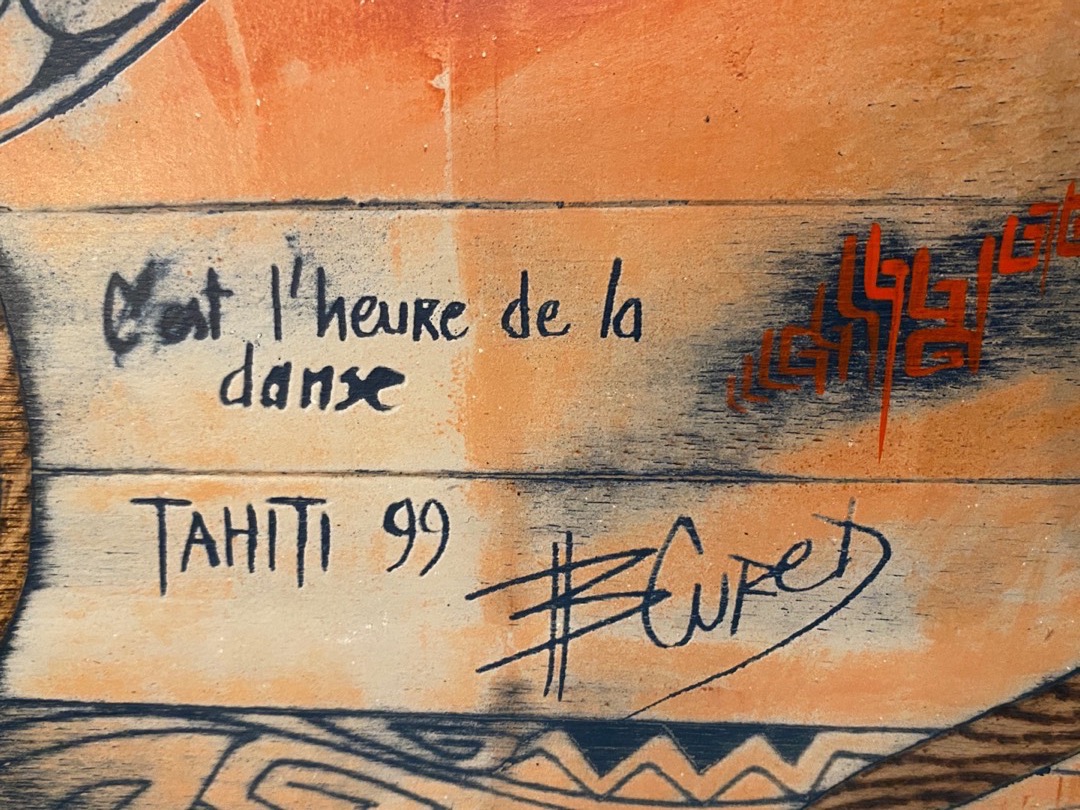 C'est l'heure de la
danse
TAHITI 99